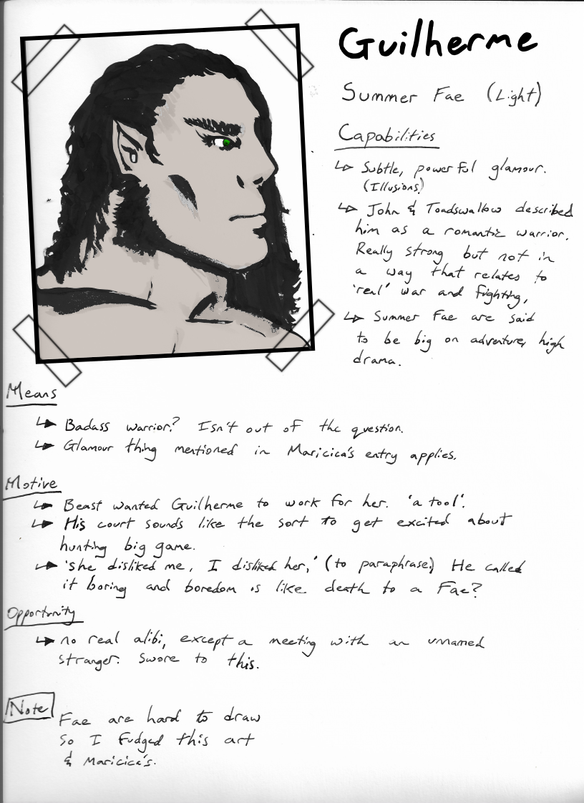 Guilherme
Summer Fae (Light)
Capabilities
↳ Subtle, powerful glamour.
(Illusions)
↳ John & Toadswallow described
him as a romantic warrior.
Really strong but not in
a way that relates to
'real' war and fighting,
↳ Summer Fae are said
to be big on adventure, high
drama.
Means
↳ Badass warrior? Isn't out of the question.
↳ Glamour thing mentioned in Maricica's entry applies.
Motive
↳ Beast wanted Guilherme to work for her. 'a tool'.
↳ His court sounds like the sort to get excited about
hunting big game.
↳ 'she disliked me, I disliked her,' (to paraphrase) He called
it boring and boredom is like death to a Fae?
Opportunity
↳ no real alibi, except a meeting with an unnamed
stranger. Swore to this.
Note
Fae are hard to draw
so I fudged this art
& Maricica's.